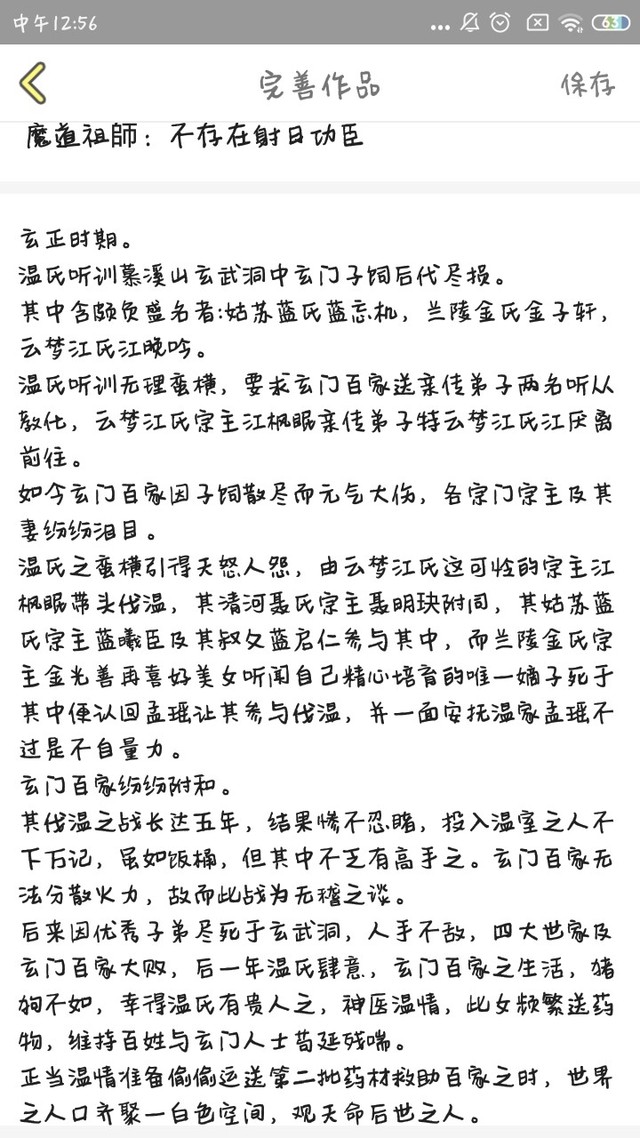 中午12:56
63
完善作品
保存
魔道祖師：不存在射日功臣
玄正时期。
温氏听训慕溪山玄武洞中玄门子饲后代尽损。
其中含颇负盛名者:姑苏蓝氏蓝忘机，兰陵金氏金子轩，
云梦江氏江晚吟。
温氏听训无理蛮横，要求玄门百家送亲传弟子两名听从
教化，云梦江氏宗主江枫眠亲传弟子特云梦江氏江厌离
前往。
如今玄门百家因子饲散尽而元气大伤，各宗门宗主及其
妻纷纷泪目。
温氏之蛮横引得天怒人怨，由云梦江氏这可怜的宗主江
枫眠带头伐温，其清河聂氏宗主聂明玦附同，其姑苏蓝
氏宗主蓝曦臣及其叔父蓝启仁参与其中，而兰陵金氏宗
主金光善再喜好美女听闻自己精心培育的唯一嫡子死于
其中便认回孟瑶让其参与伐温，并一面安抚温家孟瑶不
过是不自量力。
玄门百家纷纷附和。
其伐温之战长达五年，结果惨不忍睹，投入温室之人不
下万记，虽如饭桶，但其中不乏有高手之。玄门百家无
法分散火力，故而此战为无稽之谈。
后来因优秀子弟尽死于玄武洞，人手不敌，四大世家及
玄门百家大败，后一年温氏肆意，玄门百家之生活，猪
狗不如，幸得温氏有贵人之，神医温情，此女频繁送药
物，维持百姓与玄门人士苟延残喘。
正当温情准备偷偷运送第二批药材救助百家之时，世界
之人口齐聚一白色空间，观天命后世之人。